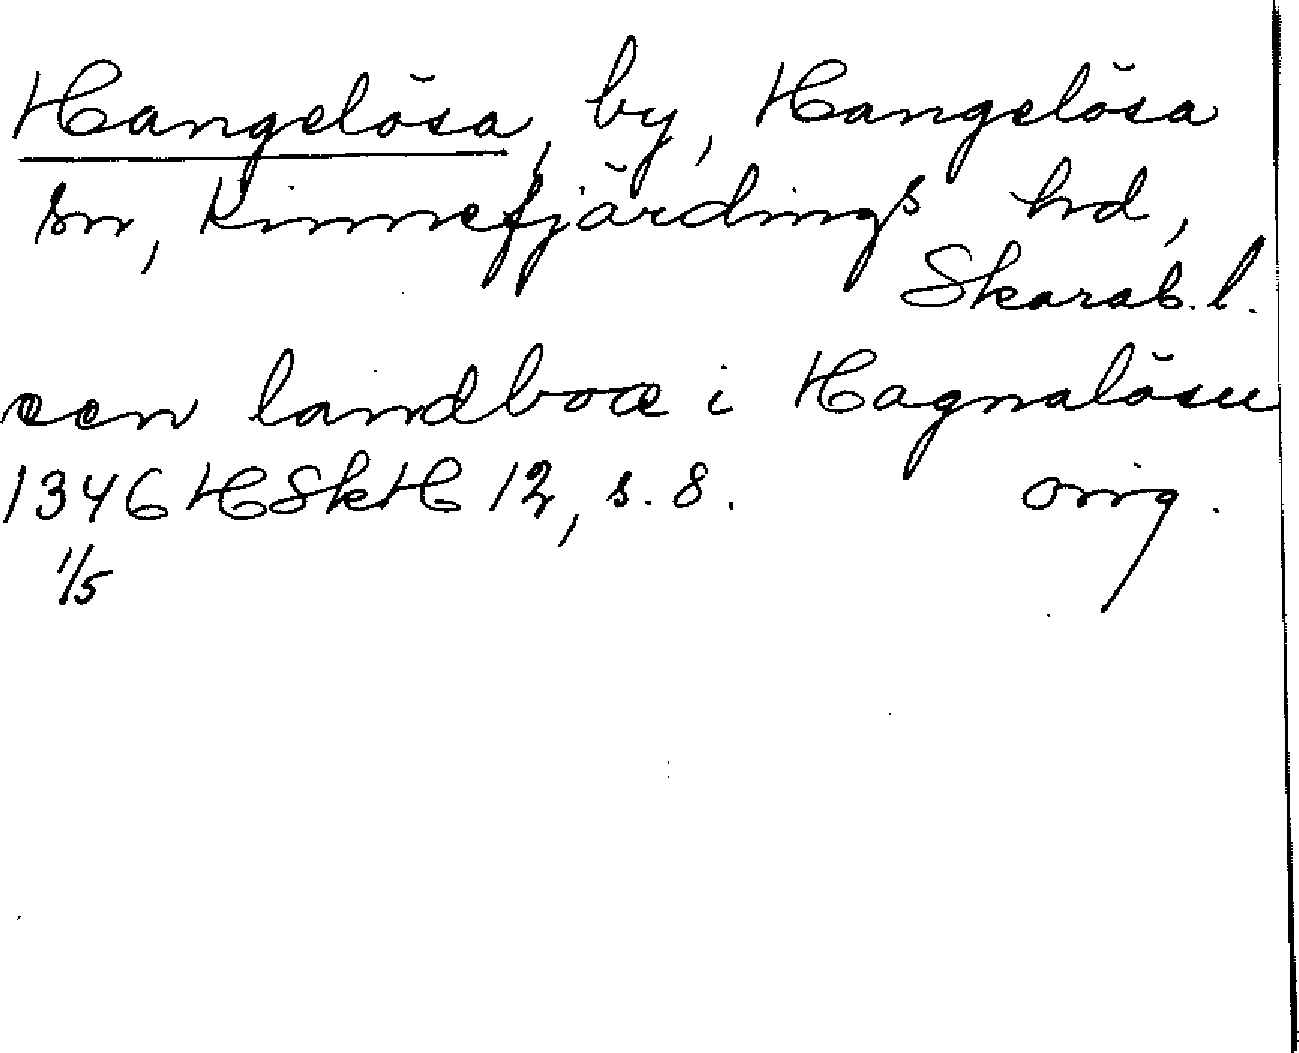 Hangelösa, by, Hangelösa
sn, Kinnefjärdings hd,
Skarab. l.
een landboæ i Hagnalösu
1346 HSkH 12, s. 8. orig.
1/5